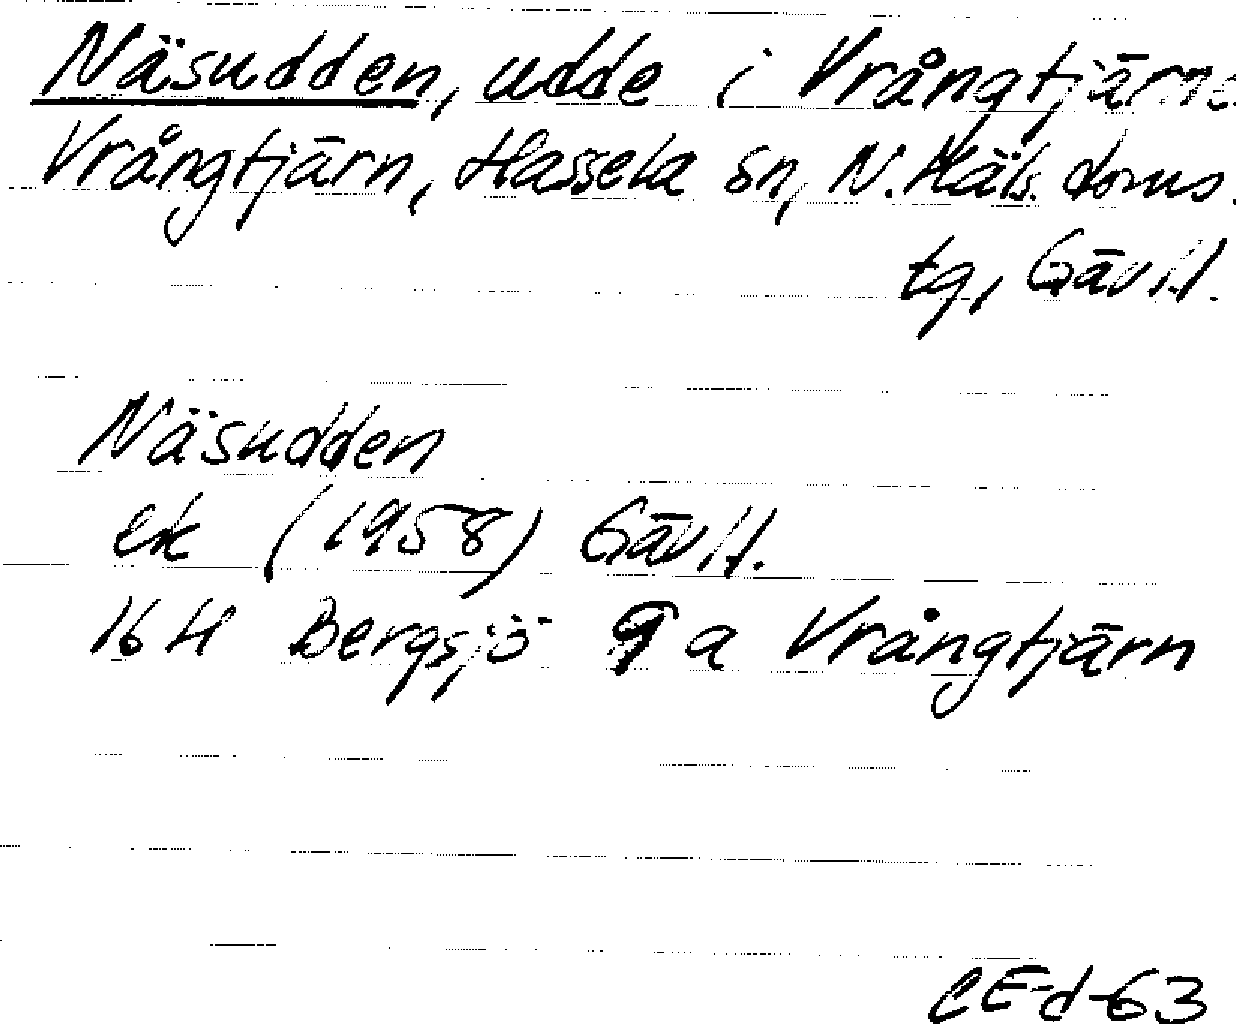 Näsudden, udde i Vrångtjärne
Vrångtjärn, Hassela sn, N. Häls. doms.
tg, Gävl.
Näsudden
ek (1958) Gävl.
16H Bergsjö 9 a Vrångtjärn
CE-d-63